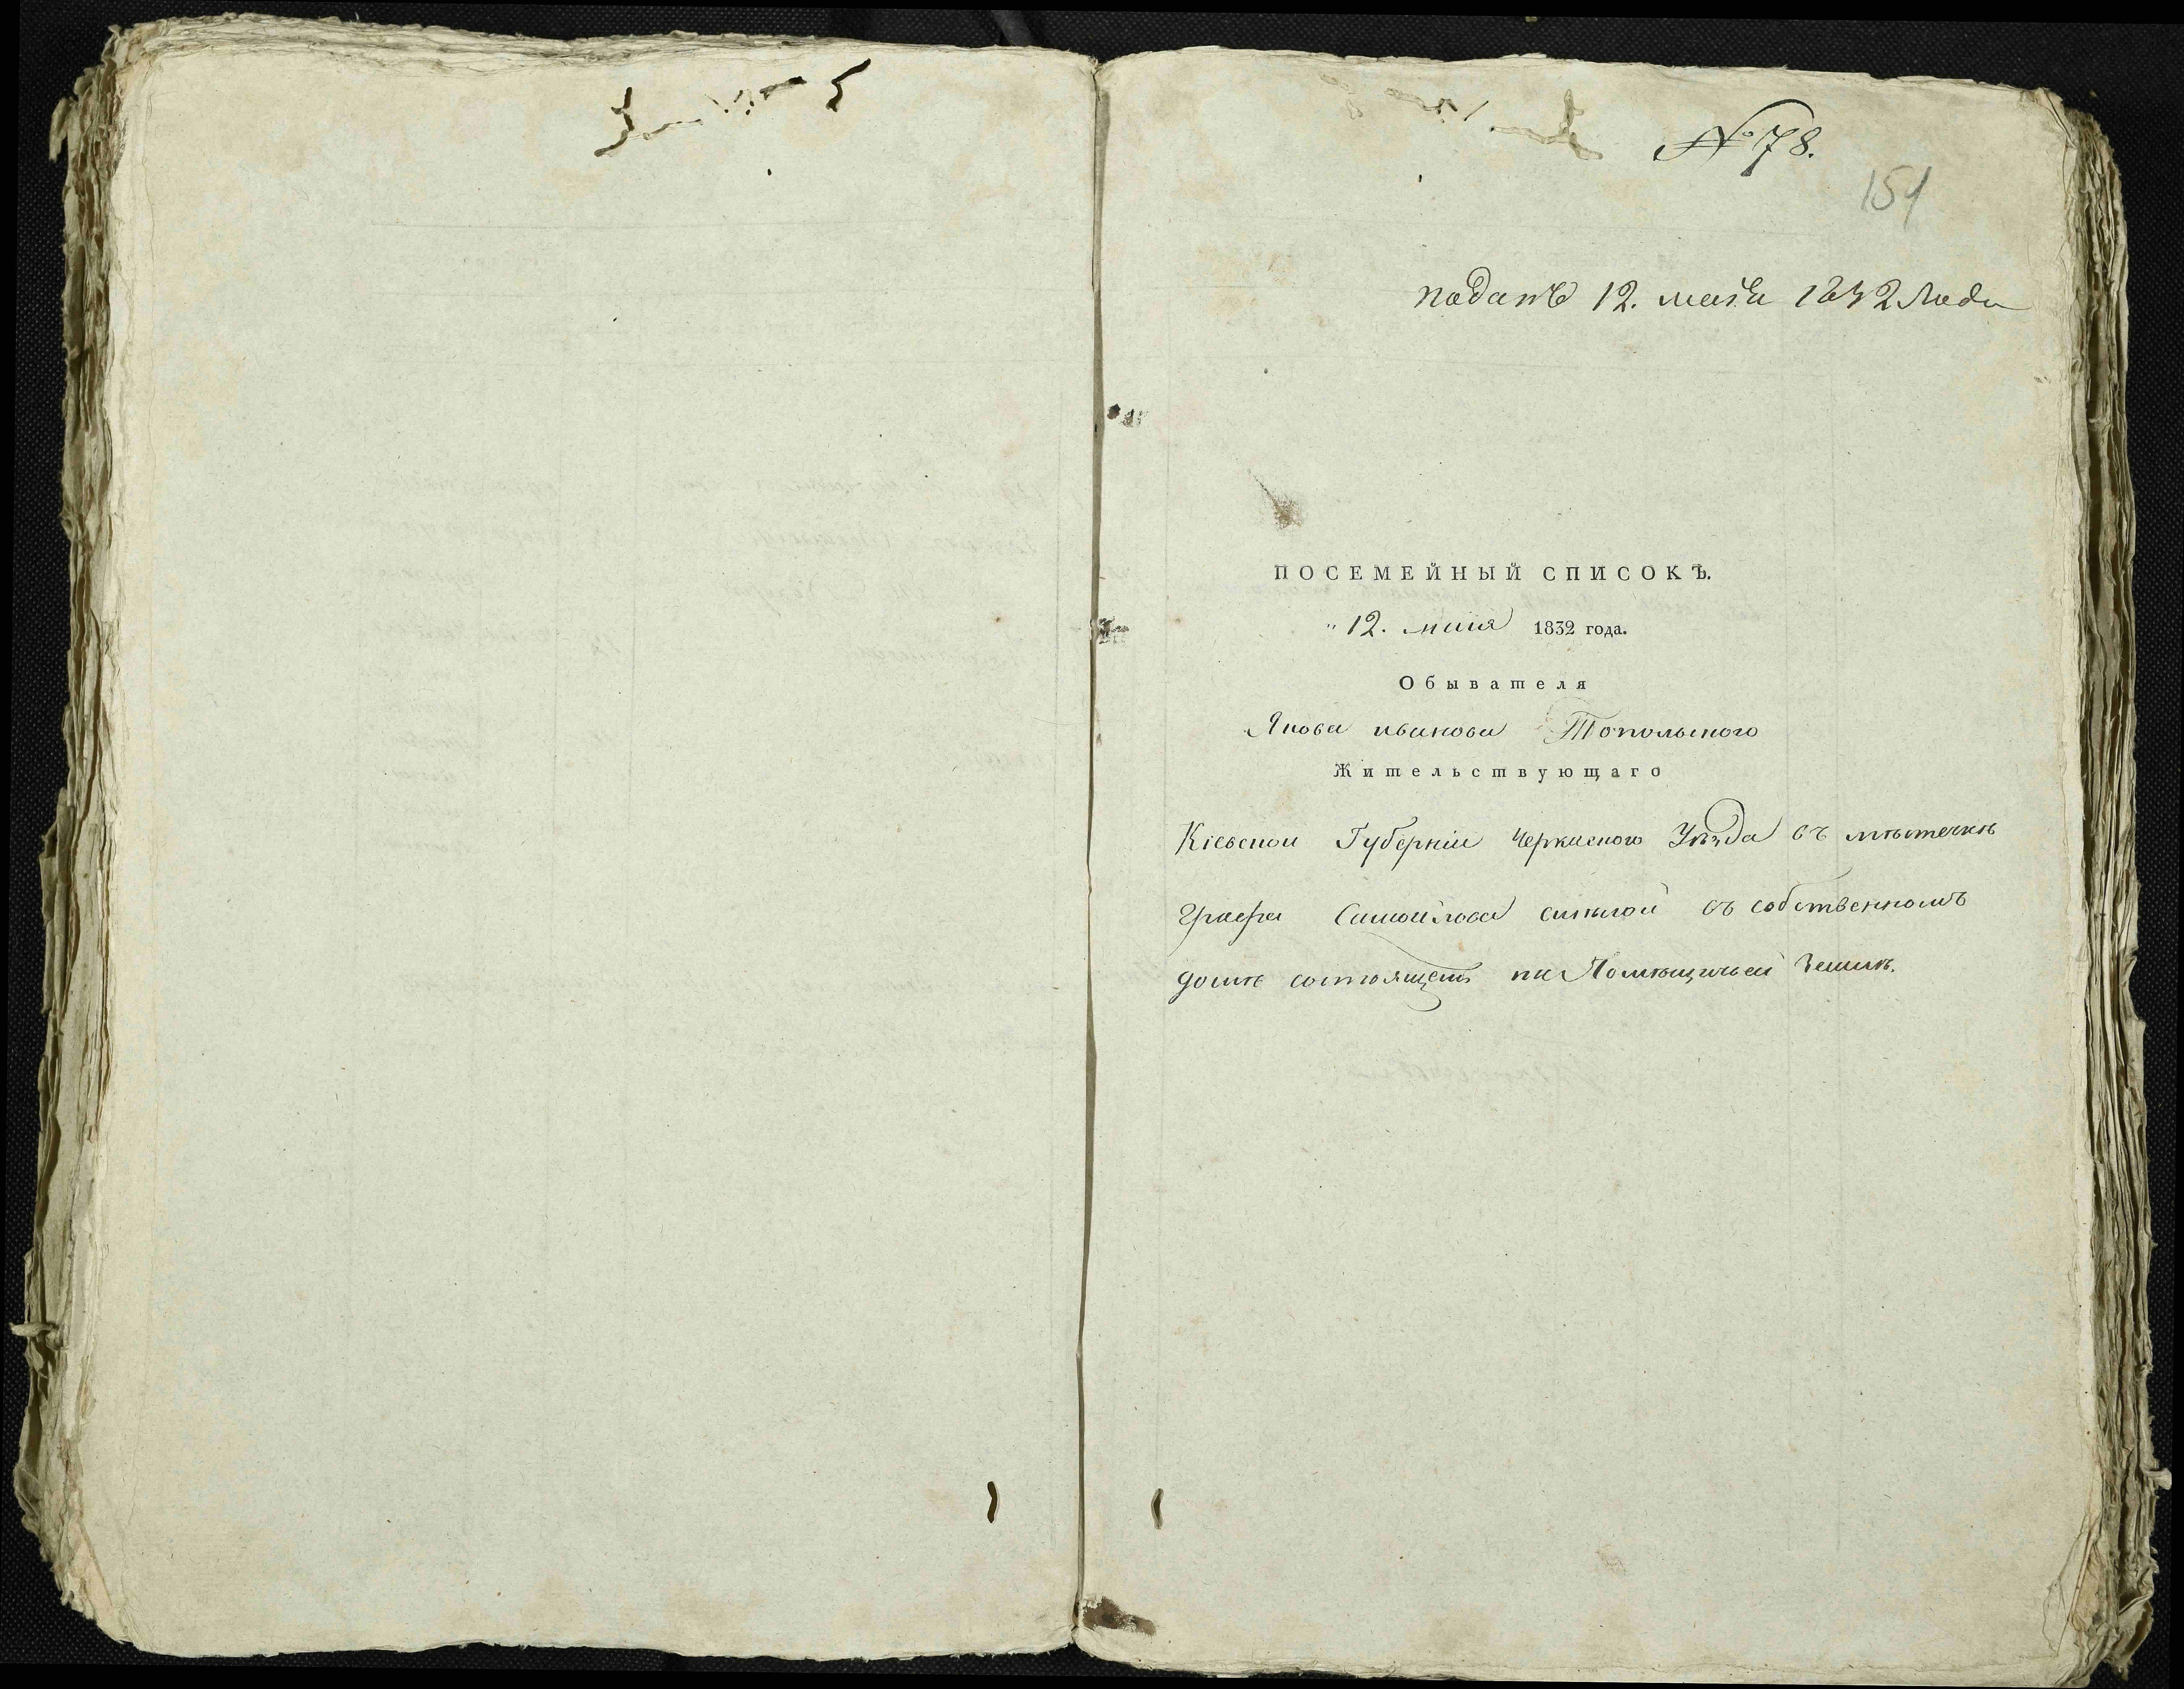 № 78.
151
поданъ 12. маія 1832 Года
ПОСЕМЕЙНЫЙ СПИСОКЪ.
"12. маія 1832 года.
Обывателя
Якова иванова Топольского
Жительствующаго
Кіевской Губерніи Черкаского Уѣзда въ мѣстечкѣ
Графа Самойлова смѣлой въ собственномъ
домѣ состоящемъ на Помѣщичьей Землѣ.